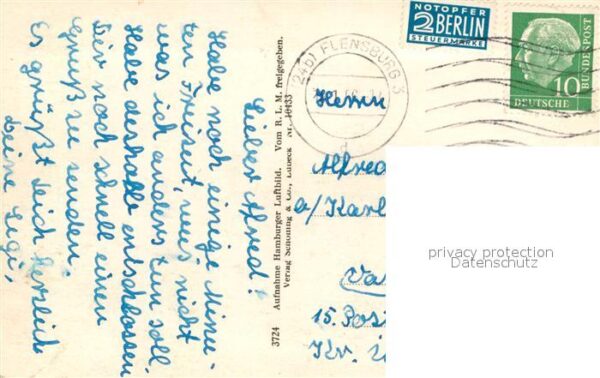 Lieber Alfred!
Habe noch einige Minu-
ten Freizeit, weis nicht
was ich anders tun soll.
Habe deshalb entschlossen
Dir noch schnell einen
Gruß zu senden
Es grüßt Dich herzlich
Deine Sigi,
3724 Aufnahme Hamburger Luftbild. Vom R. L. M. freigegeben.
Verlag Schöning & Co., Lübeck Nr. 10433
(24b) FLENSBURG 3
d
NOTOPFER
2 BERLIN
STEUERMARKE
DEUTSCHE
BUNDESPOST
10
Herrn
Alfred
a/ Karl
Va
15. Pos
Kv.
privacy protection
Datenschutz